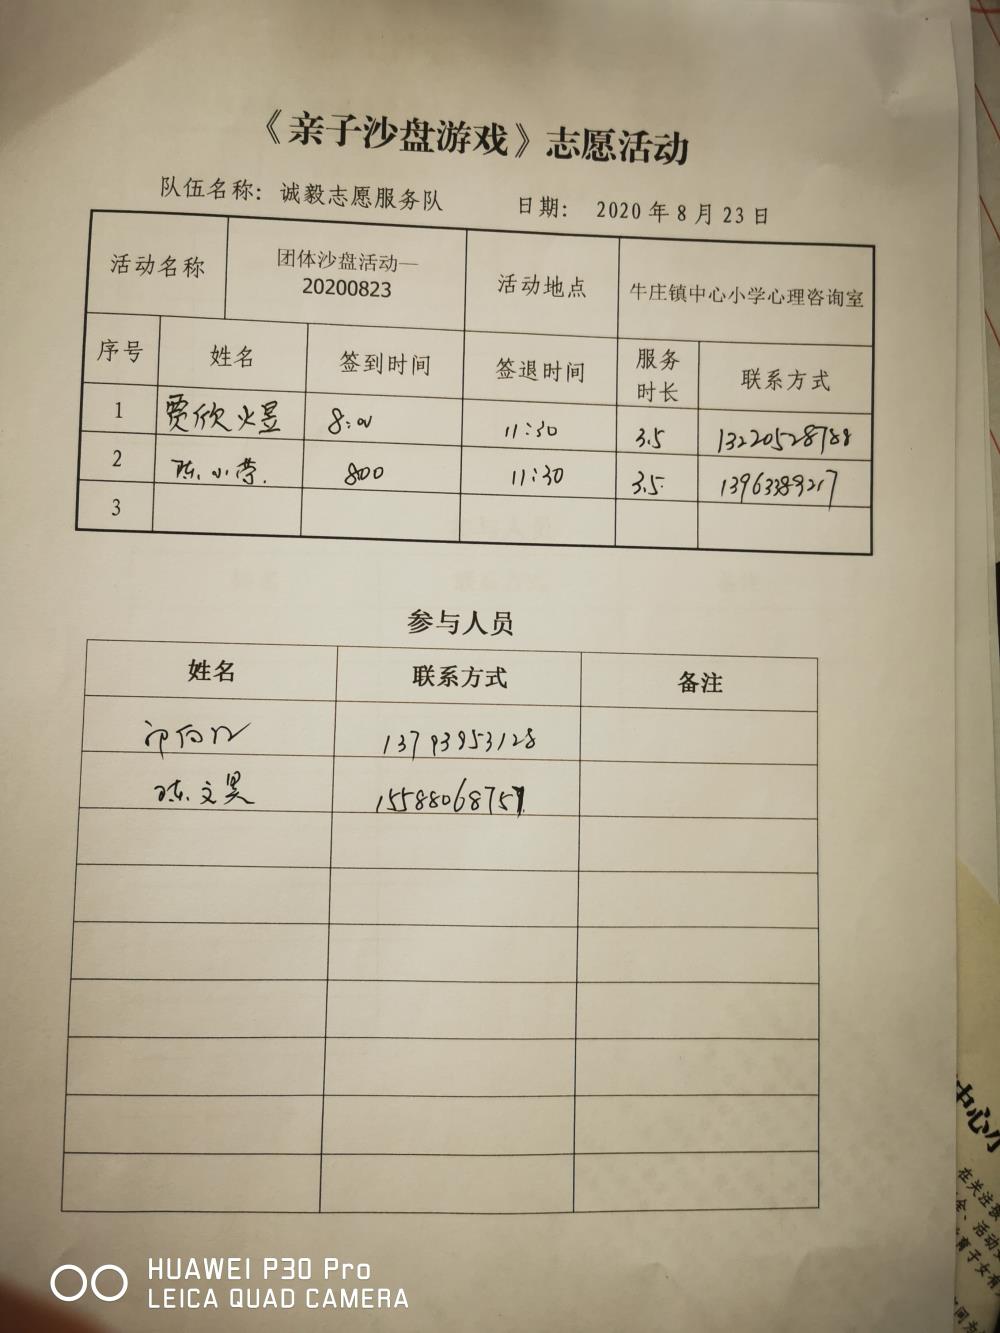 《亲子沙盘游戏》志愿活动
队伍名称：诚毅志愿服务队 日期： 2020 年 8 月 23 日
活动名称 团体沙盘活动—20200823 活动地点 牛庄镇中心小学心理咨询室
序号 姓名 签到时间 签退时间 服务时长 联系方式
1 贾欣火昱 8:00 11:30 3.5 13220528788
2 陈小荣. 800 11:30 3.5. 13963389217
3
参与人员
姓名 联系方式 备注
13793953128
陈文昊 15588068757
中心小
在关注孩
活动
育子女有
HUAWEI P30 Pro
LEICA QUAD CAMERA